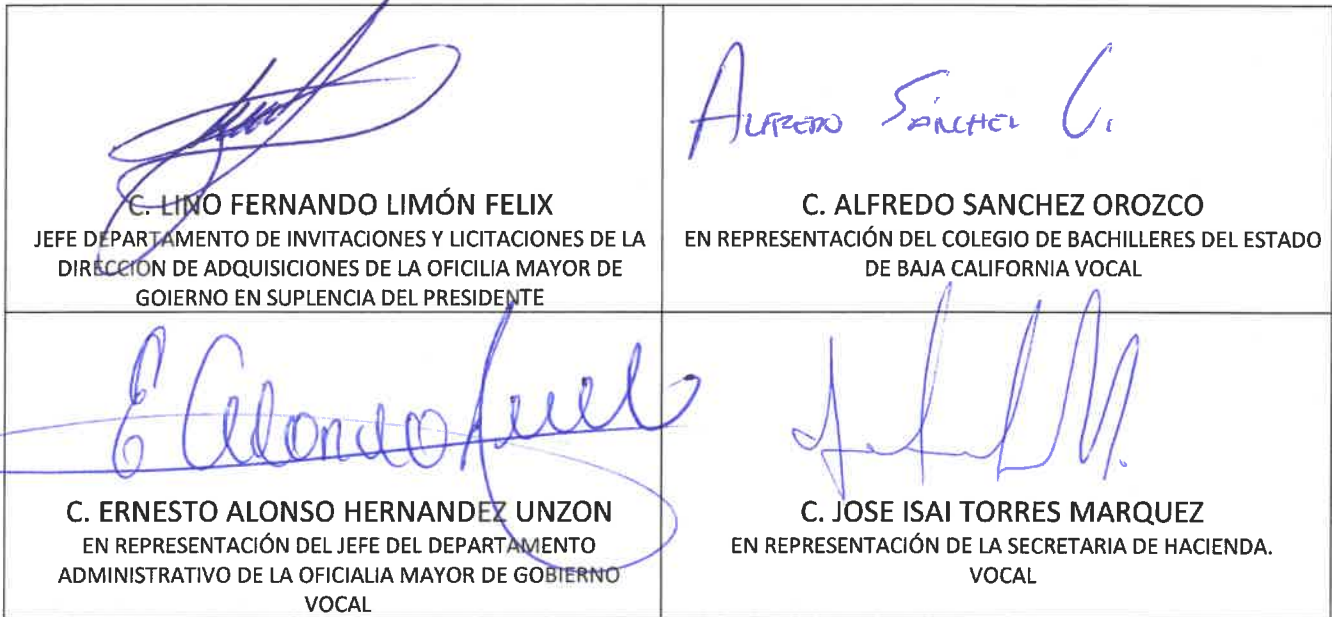 ALFREDO SÁNCHEZ O.
C. LINO FERNANDO LIMÓN FELIX
JEFE DEPARTAMENTO DE INVITACIONES Y LICITACIONES DE LA
DIRECCIÓN DE ADQUISICIONES DE LA OFICILIA MAYOR DE
GOIERNO EN SUPLENCIA DEL PRESIDENTE
C. ALFREDO SANCHEZ OROZCO
EN REPRESENTACIÓN DEL COLEGIO DE BACHILLERES DEL ESTADO
DE BAJA CALIFORNIA VOCAL
C. ERNESTO ALONSO HERNANDEZ UNZON
EN REPRESENTACIÓN DEL JEFE DEL DEPARTAMENTO
ADMINISTRATIVO DE LA OFICIALIA MAYOR DE GOBIERNO
VOCAL
C. JOSE ISAI TORRES MARQUEZ
EN REPRESENTACIÓN DE LA SECRETARIA DE HACIENDA.
VOCAL